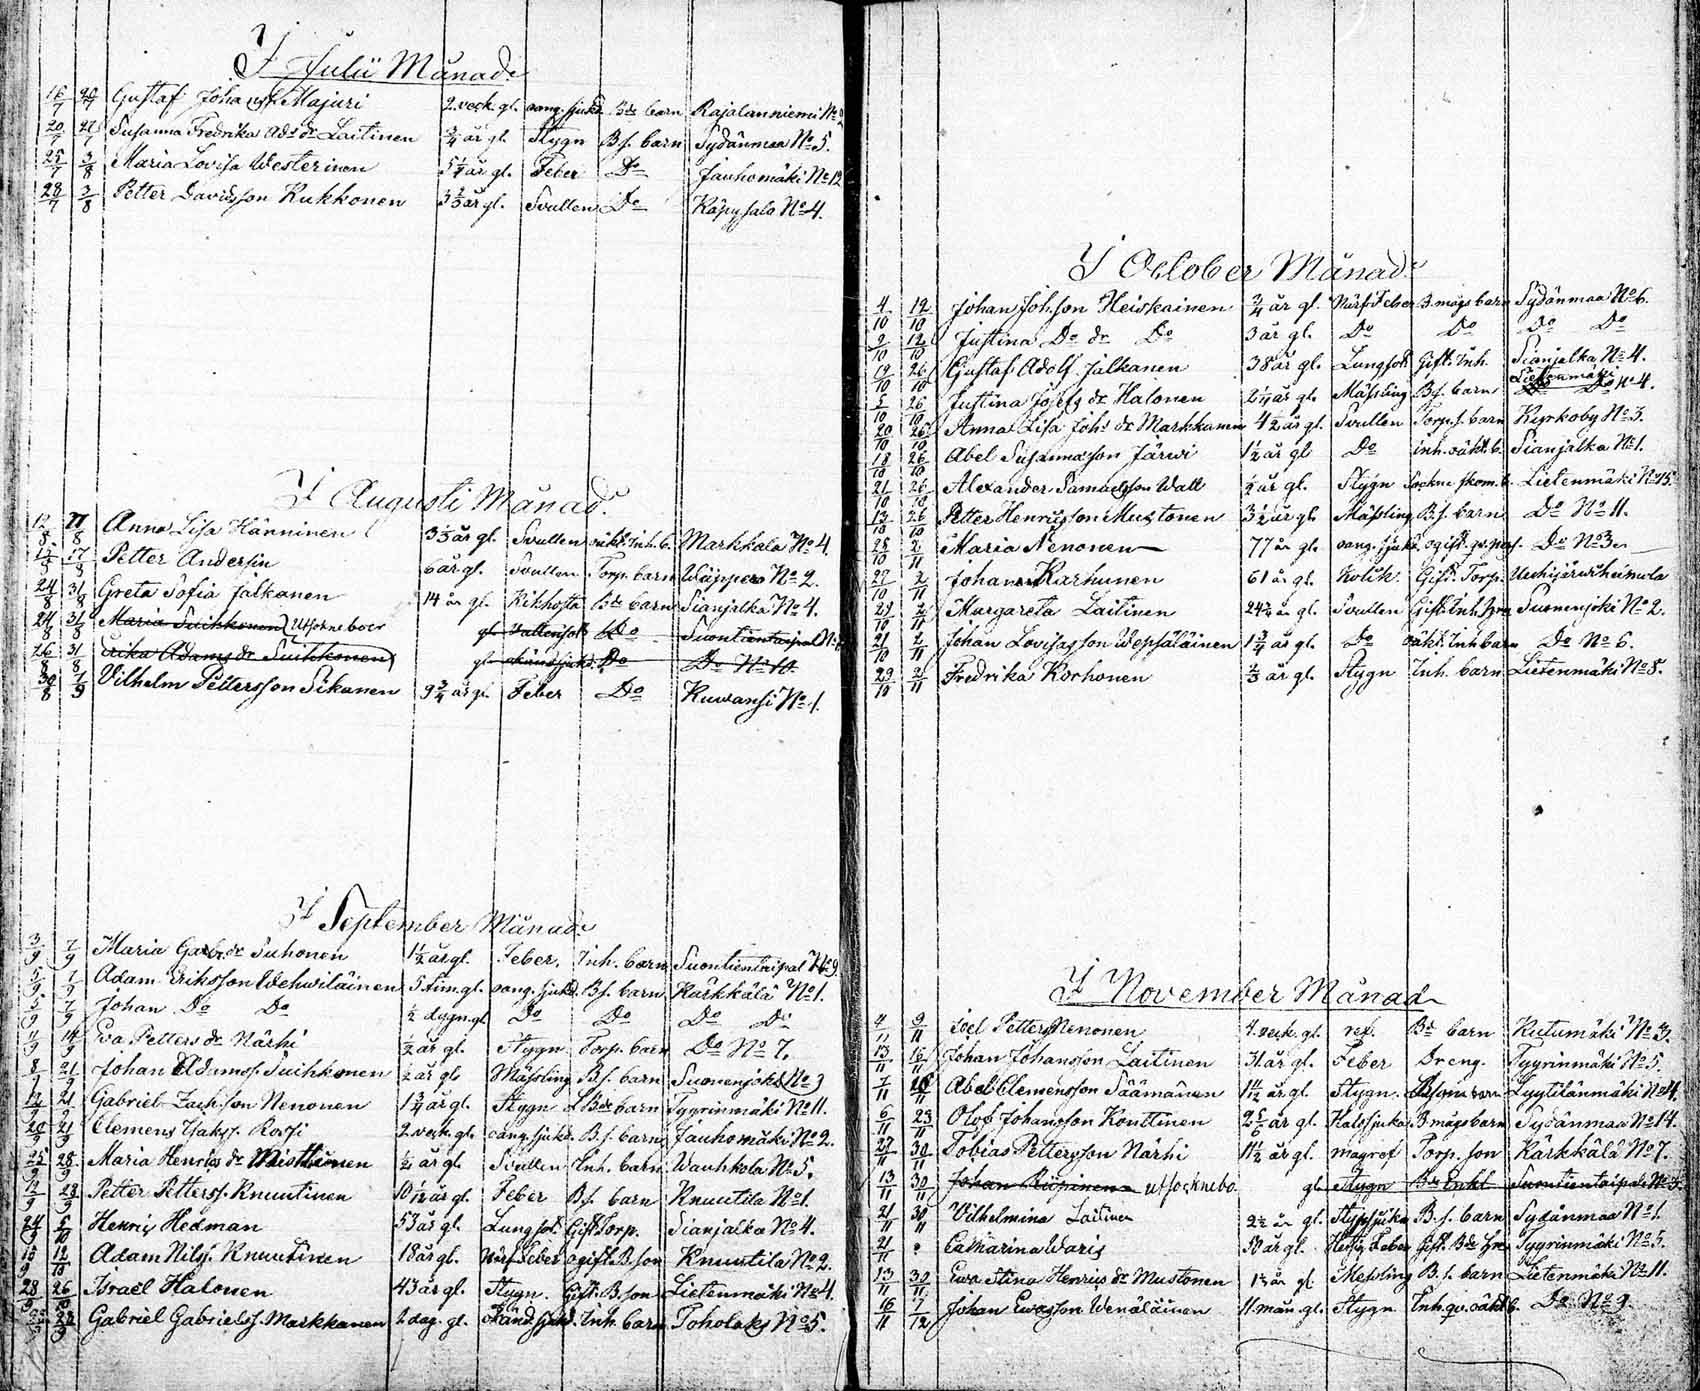 I Julii Månad.
16/7 20/7 Gustaf Johansf. Majuri 2. veck. gl. oang. sjukd. Bde barn Rajalanniemi No 2
20/7 27/7 Susanna Fredrika Ads dr Laitinen 3/4 år gl. Stygn B.s. barn Sydänmaa No 5.
25/7 3/8 Maria Lovisa Westerinen 5 1/4 år gl. Feber Do Jauhomäki No 12
28/7 3/8 Petter Davidsson Kukkonen 3 2/3 år gl. Svullen Do Käpysalo No 4.
I Augusti Månad.
12/8 17/8 Anna Lisa Hänninen 3 1/2 år gl. Svullen oäkt. Inh. b. Markkala No 4.
12/8 17/8 Petter Andersin 6 år gl. Svullen Torp. barn Wäppero No 2.
24/8 31/8 Greta Sofia Jalkanen 14 år gl. Kikhosta Bde barn Sianjalka No 4.
24/8 31/8 Maria Suihkonen Utsockneboer gl. Vattensot Do Suontientaipal No
26/8 31/8 Erika Adams dr Suihkonen gl. okänd sjukd. Do Do No 10
30/8 7/9 Vilhelm Pettersson Sikanen 9 3/4 år gl. Feber Do Kuvansi No 1.
I September Månad.
3/9 7/9 Maria Gabr. dr Suhonen 1 1/2 år gl. Feber. Inh. barn Suontientaipal No 9.
5/9 7/9 Adam Eriksson Wehwiläinen 5 tim. gl. oang. sjukd. B.s. barn Kärkkälä No 1.
5/9 7/9 Johan Do Do 1/2 dygn. gl. Do Do Do Do
7/9 14/9 Eva Petters dr Närhi 1/2 år gl. Stygn Torp. barn Do No 7.
8/9 21/9 Johan Adamss. Suihkonen 1/2 år gl. Mässling B.s. barn Suonenjoki No 3
12/9 21/9 Gabriel Zach.son Nenonen 1 3/4 år gl. Stygn Bde barn Tyyrinmäki No 11.
20/9 21/9 Clemens Isakss. Rossi 2. veck. gl. oang. sjukd. B.s. barn Jauhomäki No 2.
25/9 28/9 Maria Henriks dr Miettinen 1/4 år gl. Svullen Inh. barn Wauhkola No 5.
12/9 28/9 Petter Petterss. Knuutinen 10 1/12 år gl. Feber B.s. barn Knuutila No 1.
24/9 5/10 Henric Hedman 53 år gl. Lungsot. Gift Torp. Sianjalka No 4.
10/9 12/10 Adam Nilss. Knuutinen 18 år gl. Närf Feber ogift B.son Knuutila No 2.
28/9 26/10 Israël Halonen 43 år gl. Stygn. Gift. B.son Lietenmäki No 4.
28/9 Gabriel Gabrielss. Markkanen 2 dag. gl. okänd sjukd. Inh. barn Toholaks No 5.
I October Månad.
4/10 12/10 Johan Johsson Heiskainen 3/4 år gl. Närf Feber B. mågs barn Sydänmaa No 6.
9/10 12/10 Justina Do dr Do 3 år gl. Do Do Do Do
19/10 26/10 Gustaf Adolf Jalkanen 38 år gl. Lungsot Gift. Inh. Sianjalka No 4.
5/10 26/10 Justina Josefs dr Halonen 2 1/4 år gl. Mässling B.s. barn Lietenmäki No 4.
20/10 26/10 Anna Lisa Johs dr Markkanen 4 1/2 år gl. Svullen Torp.s. barn Kyrkoby No 3.
18/10 26/10 Abel Susannasson Järwi 1 1/2 år gl Do inh. oäkt. b. Sianjalka No 1.
21/10 26/10 Alexander Samuelsson Watt 1/2 år gl. Stygn Sockne skom. b. Lietenmäki No 15.
13/10 26/10 Petter Henricsson Mustonen 3 1/2 år gl. Mässling B.s. barn Do No 11.
28/10 2/11 Maria Nenonen 77 år gl. oang. sjukd. ogift. qv.pers. Do No 3.
27/10 2/11 Johan Karhunen 61 år gl. Kolik. Gift. Torp. Uechijärwi heimola
29/10 2/11 Margareta Laitinen 24 3/4 år gl. Svullen Gift Inh. hru Suonenjoki No 2.
21/10 2/11 Johan Lovisasson Wepsäläinen 1 3/4 år gl. Do oäkt. Inh barn Do No 6.
29/10 2/11 Fredrika Korhonen 1/3 år gl. Stygn Inh. barn Lietenmäki No 8.
I November Månad
4/11 9/11 Joel Petters. Nenonen 4. veck. gl. ref. Bde barn Kutumäki No 3.
13/11 16/11 Johan Johansson Laitinen 31 år gl. Feber Dreng. Tyyrinmäki No 5.
7/11 16/11 Abel Clemensson Säämänen 1 1/2 år gl. Stygn. Lyytilänmäki No 4.
6/11 23/11 Olof Johansson Konttinen 2 5/6 år gl. Halssjuka B mågs barn Sydänmaa No 14.
27/11 30/11 Tobias Pettersson Närhi 11 1/2 år gl. magref Torp. son Kärkkälä No 7.
13/11 30/11 Johan Riipinen utsocknebo. gl. Stygn Bde Enkl Suontientaipale No 3.
21/11 30/11 Vilhelmina Laitinen 2 1/2 år gl. Strypsjuka B.s. barn Sydänmaa No 1.
21/11 Catharina Waris 50 år gl. Hetsig Feber Gift. Bde hru Tyyrinmäki No 5.
13/11 30/11 Ewa Stina Henrics dr Mustonen 1 1/2 år gl. Messling B.s. barn Lietenmäki No 11.
16/11 7/12 Johan Ewasson Wenäläinen 11 mån. gl. Stygn Inh. qv. oäkt b. Do No 9.